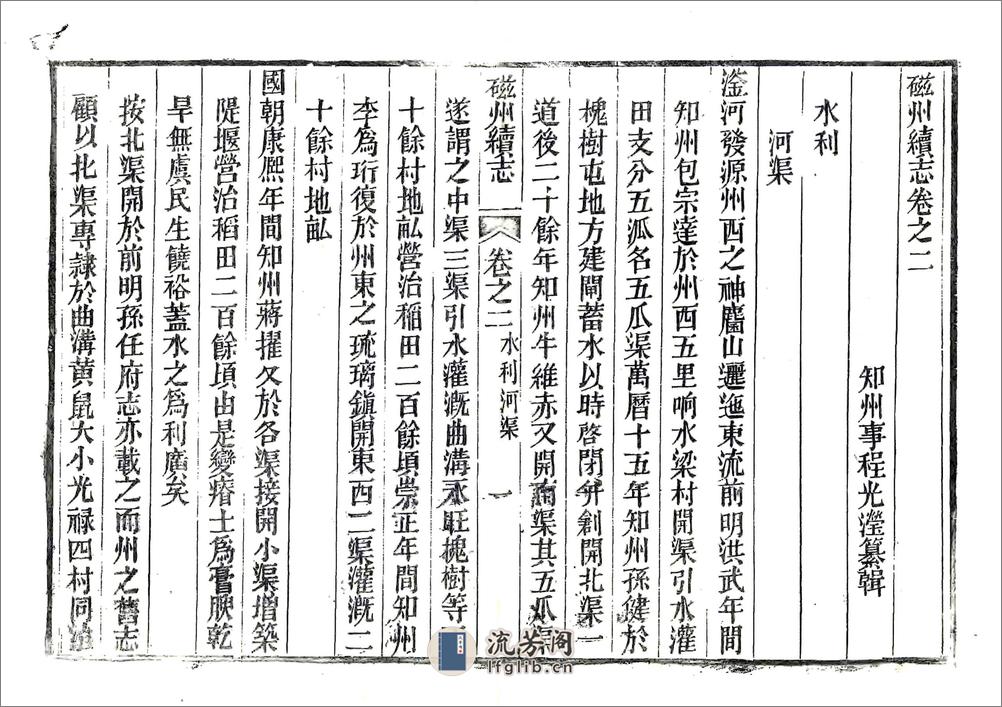 磁州續志卷之二
知州事程光瀅纂輯
水利
河渠
滏河發源州西之神麕山邐迤東流前明洪武年間
知州包宗達於州西五里响水梁村開渠引水灌
田支分五瓜名五瓜渠萬曆十五年知州孫健於
槐樹屯地方建閘蓄水以時啓閉幷創開北渠一
道後二十餘年知州牛維赤又開南渠其五瓜渠
磁州續志 卷之二 水利河渠 一
遂謂之中渠三渠引水灌溉曲溝永旺槐樹等
十餘村地畝營治稻田二百餘頃崇正年間知州
李為珩復於州東之琉璃鎮開東西二渠灌溉二
十餘村地畝
國朝康熙年間知州蔣擢又於各渠接開小渠增築
隄堰營治稻田二百餘頃由是變瘠土為膏腴乾
旱無虞民生饒裕蓋水之為利廣矣
按北渠開於前明孫任府志亦載之而州之舊志
顧以北渠專隸於曲溝黄鼠大小光祿四村同治
流芳閣
lfglib.cn